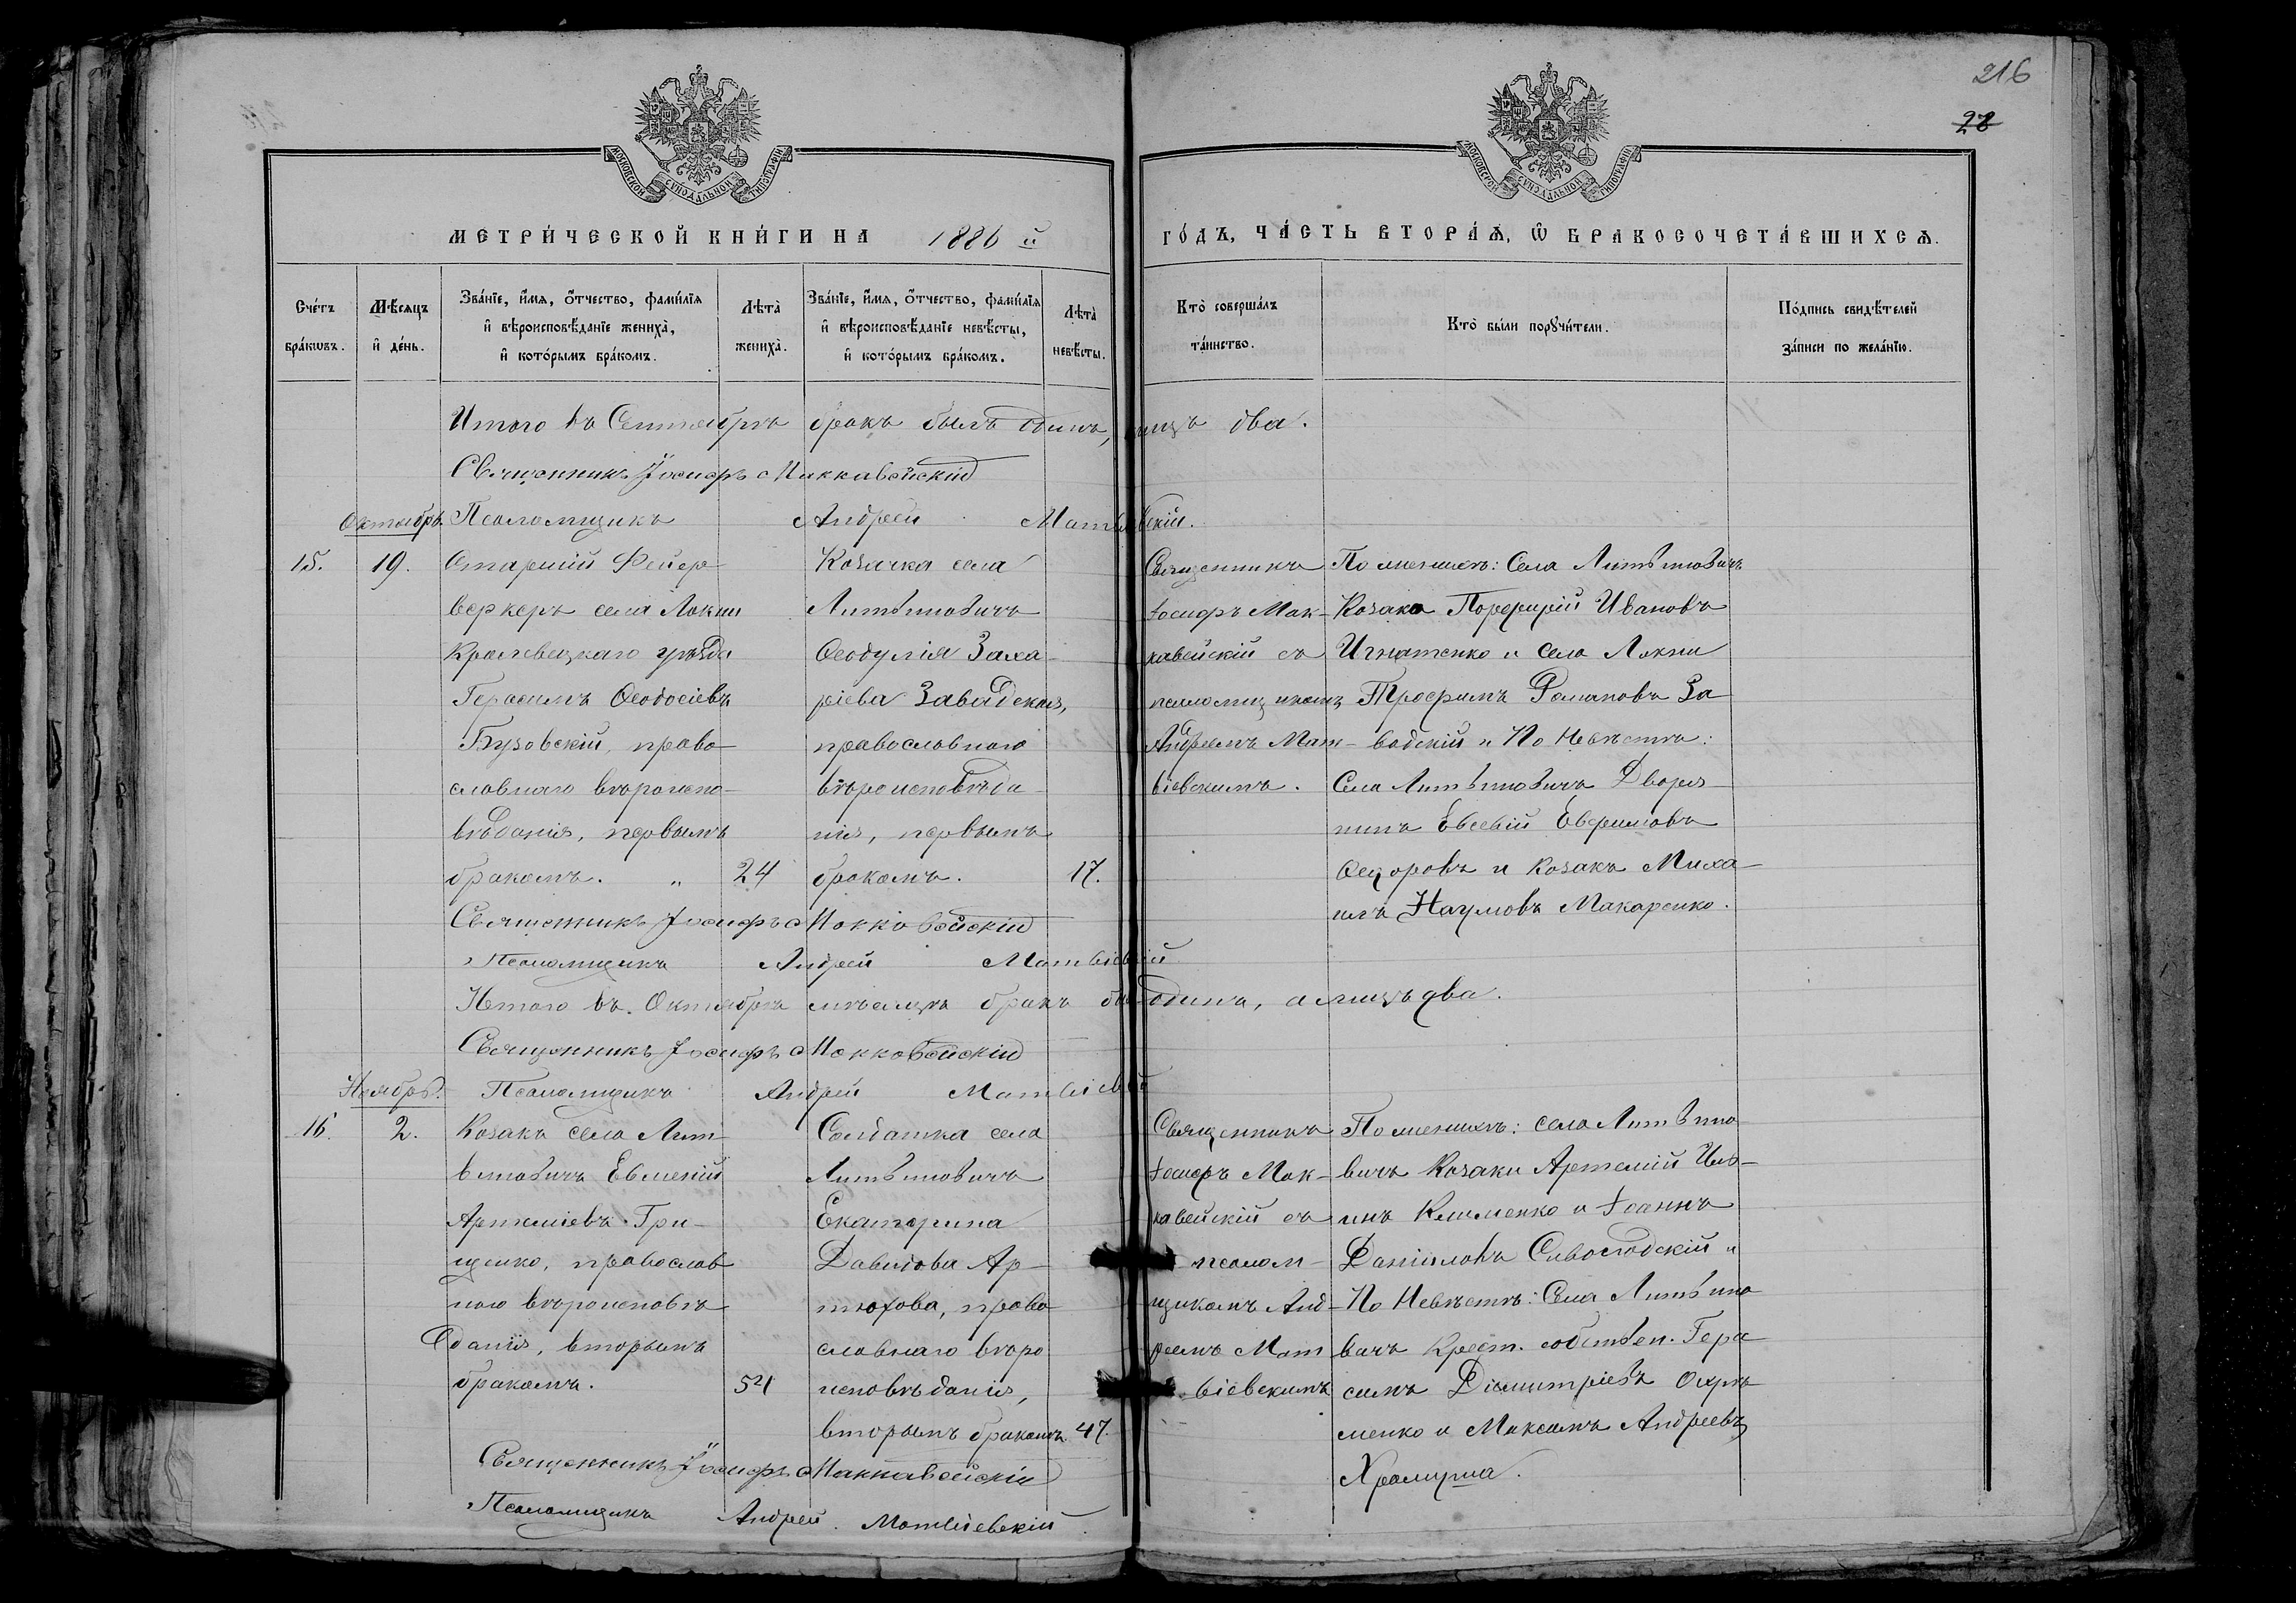 216
28
МОСКОВСКОЙ СѴНОДАЛЬНОЙ ТИПОГРАФІИ
МОСКОВСКОЙ СѴНОДАЛЬНОЙ ТИПОГРАФІИ
МЕТРИ́ЧЕСКОЙ КНИ́ГИ НА 1886 й ГО́ДЪ, ЧА́СТЬ ВТОРА́Ѧ, Ѡ҆ БРАКОСОЧЕТА́ВШИХСѦ.
Сче́тъ бра́кѡвъ.
Мѣ́сѧцъ и҆ де́нь.
Зва́нїе, и҆́мѧ, ѻ҆́тчество, фами́лїѧ и҆ вѣроисповѣ́данїе жениха̀, и҆ кото́рымъ бра́комъ.
Лѣта̀ жениха̀.
Зва́нїе, и҆́мѧ, ѻ҆́тчество, фами́лїѧ и҆ вѣроисповѣ́данїе невѣ́сты, и҆ кото́рымъ бра́комъ.
Лѣта̀ невѣ́сты.
Кто̀ соверша́лъ та́инство.
Кто̀ бы́ли порꙋчи́тели.
По́дпись свидѣ́телей за́писи по жела́нїю.
Итого въ Сентябрѣ бракъ былъ одинъ, лицъ два.
Священникъ Іосифъ Маккавейскій
Октябрь. Псаломщикъ Андрей Матвіевскій.
15. 19.
Старшій Фейер-
веркеръ села Локни
Кролевецкаго уѣзда
Герасимъ Ѳеодосіевъ
Бузовскій, право-
славнаго вѣроиспо-
вѣданія, первымъ
бракомъ. „ 24
Козачка села
Литвиновичъ
Ѳеодулія Заха-
ріева Завадская,
православнаго
вѣроисповѣда-
нія, первымъ
бракомъ. 17.
Священникъ
Іосифъ Мак-
кавейскій съ
псаломщикомъ
Андреемъ Мат-
віевскимъ.
По женихѣ: Села Литвиновичъ
Козакъ Порфирій Ивановъ
Игнатенко и села Локни
Трофимъ Романовъ За-
вадскій и По Невѣстѣ:
Села Литвиновичъ Дворя-
нинъ Евсевій Евфимовъ
Ѳедоровъ и Козакъ Миха-
илъ Наумовъ Макаренко.
Священникъ Іосифъ Маккавейскій
Псаломщикъ Андрей Матвіевскій
Итого въ Октябрѣ мѣсяцѣ бракъ одинъ, а лицъ два.
Священникъ Іосифъ Маккавейскій
Ноябрь. Псаломщикъ Андрей Матвіевскій
16. 2.
Козакъ села Лит-
виновичъ Евменій
Артеміевъ Гри-
щенко, православ
наго вѣроисповѣ
данія, вторымъ
бракомъ. 54
Солдатка села
Литвиновичъ
Екатерина
Давидова Ар-
тюхова, право
славнаго вѣро
исповѣданія,
вторымъ бракомъ. 47.
Священникъ
Іосифъ Мак-
кавейскій съ
псалом-
щикомъ Анд-
реемъ Мат
віевскимъ
По женихѣ: села Литвино
вичъ Козаки Артемій Иль-
инъ Клименко и Іоаннъ
Даніиловъ и
По Невѣстѣ: Села Литвино
вичъ Крест. собствен. Гера
симъ Димитріевъ Охрѣ
менко и Максимъ Андреевъ
Храмуша.
Священникъ Іосифъ Маккавейскій
Псаломщикъ Андрей Матвіевскій.